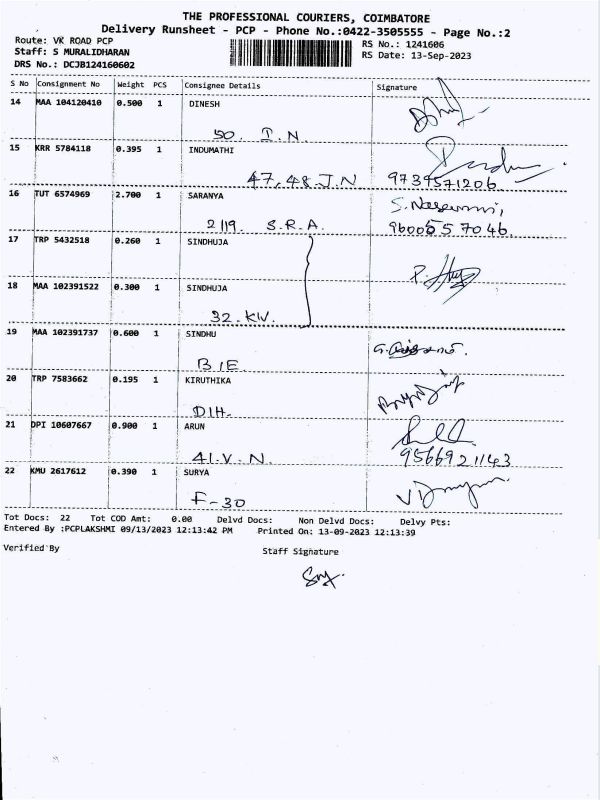 THE PROFESSIONAL COURIERS, COIMBATORE
Delivery Runsheet - PCP - Phone No.:0422-3505555 - Page No.:2
Route: VK ROAD PCP
Staff: S MURALIDHARAN
DRS No.: DCJB124160602
RS No.: 1241606
RS Date: 13-Sep-2023
S No Consignment No Weight PCS Consignee Details Signature
14 MAA 104120410 0.500 1 DINESH
50. I.N.
15 KRR 5784118 0.395 1 INDUMATHI
47,48 J.N 9734571206
16 TUT 6574969 2.700 1 SARANYA
2119. S.R.A. 9600557046.
17 TRP 5432518 0.260 1 SINDHUJA
18 MAA 102391522 0.300 1 SINDHUJA
32. KW.
19 MAA 102391737 0.600 1 SINDHU
B1E.
20 TRP 7583662 0.195 1 KIRUTHIKA
D1H.
21 DPI 10607667 0.900 1 ARUN
41.V.N. 9566921143
22 KMU 2617612 0.390 1 SURYA
F-30
Tot Docs: 22 Tot COD Amt: 0.00 Delvd Docs: Non Delvd Docs: Delvy Pts:
Entered By :PCPLAKSHMI 09/13/2023 12:13:42 PM Printed On: 13-09-2023 12:13:39
Verified By Staff Signature